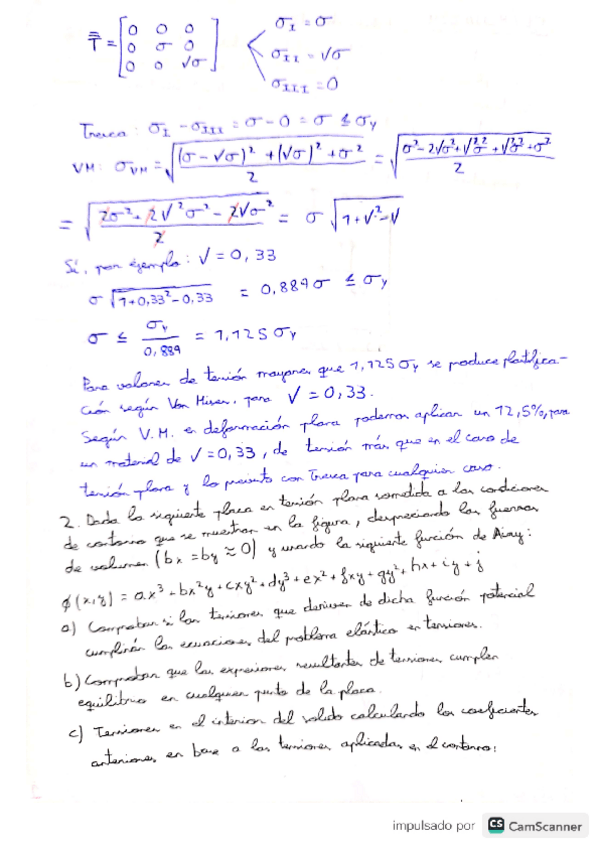 T̿ = [0 0 0; 0 σ 0; 0 0 √σ] < σI = σ
σII = √σ
σIII = 0
Tresca: σI - σIII = σ - 0 = σ ≤ σY
VM: σVM = √(((σ - √σ)² + (√σ)² + σ²)/2) = √((σ² - 2√σ² + √²σ² + √²σ² + σ²)/2)
= √((2σ² + 2√²σ² - 2√σ²)/2) = σ √(1 + √² - √)
Si, por ejemplo: √ = 0,33
σ √(1+0,33² - 0,33) = 0,889σ ≤ σY
σ ≤ σY/0,889 = 1,125σY
Para valores de tensión mayores que 1,125σY se produce plastifica-
ción según Von Mises, para √ = 0,33.
Según V.M. en deformación plana podemos aplicar un 12,5%, para
un material de √ = 0,33, de tensión más que en el caso de
tensión plana y lo previsto con Tresca para cualquier caso.
2. Dada la siguiente placa en tensión plana sometida a las condiciones
de contorno que se muestran en la figura, despreciando las fuerzas
de volumen (bx = by ≈ 0) y usando la siguiente función de Airy:
ϕ(x,y) = ax³ + bx²y + cxy² + dy³ + ex² + fxy + gy² + hx + iy + j
a) Comprobar si las tensiones que derivan de dicha función potencial
cumplirán las ecuaciones del problema elástico en tensiones.
b) Comprobar que las expresiones resultantes de tensiones cumplen
equilibrio en cualquier punto de la placa.
c) Tensiones en el interior del solido calculando los coeficientes
anteriores, en base a las tensiones aplicadas en el contorno:
impulsado por CS CamScanner